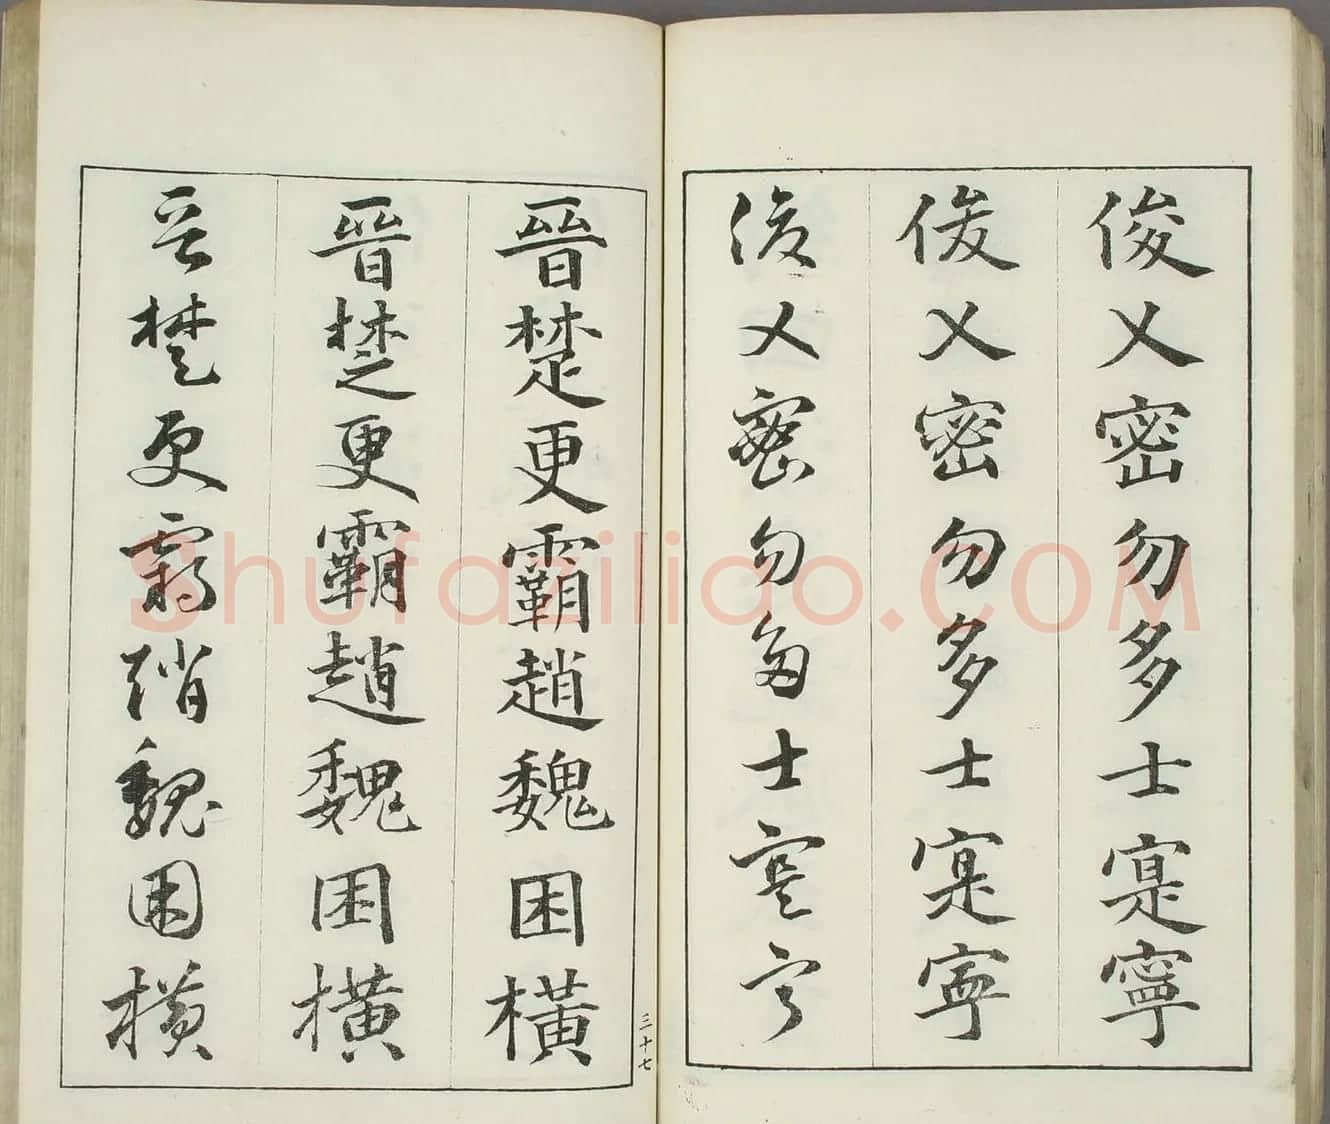 俊乂密勿多士寔寧
俊乂密勿多士寔寧
俊乂密勿多士寔寧
晉楚更霸趙魏困橫
晉楚更霸趙魏困橫
晉楚更霸趙魏困橫
三十七
Shufazilido.COM